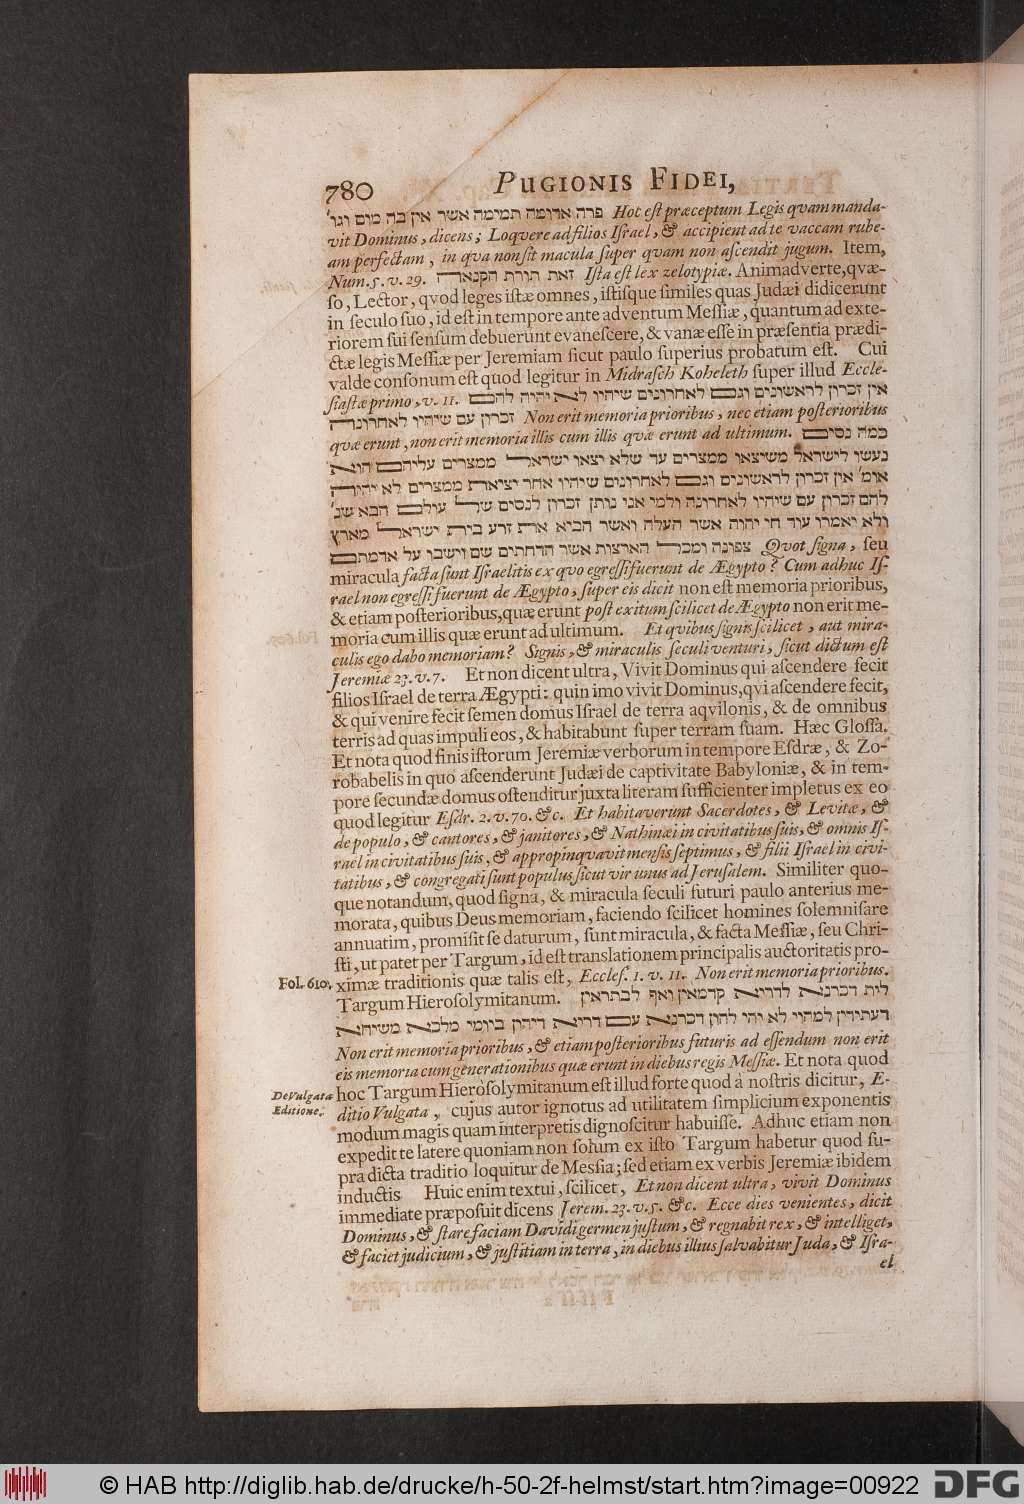 780 PUGIONIS FIDEI,
פרה אדומה תמימה אשר אין בה מום וגו' Hoc eſt præceptum Legis qvam manda-
vit Dominus, dicens; Loqvere ad filios Iſrael, & accipient ad te vaccam rube-
am perfectam, in qva non ſit macula ſuper qvam non aſcendit jugum. Item,
Num. 5. v. 29. זאת תורת הקנאה Iſta eſt lex zelotypiæ. Animadverte, qvæ-
ſo, Lector, qvod leges iſtæ omnes, iſtiſque ſimiles quas Judæi didicerunt
in ſeculo ſuo, id eſt in tempore ante adventum Meſſiæ, quantum ad exte-
riorem ſui ſenſum debuerunt evaneſcere, & vanæ eſſe in præſentia prædi-
ctæ legis Meſſiæ per Jeremiam ſicut paulo ſuperius probatum eſt. Cui
valde conſonum eſt quod legitur in Midraſch Koheleth ſuper illud Eccle-
ſiaſtæ primo, v. 11. אין זכרון לראשונים וגם לאחרונים שיהיו לא יהיה להם
זכרון עם שיהיו לאחרונה Non erit memoria prioribus, nec etiam poſterioribus
qvæ erunt, non erit memoria illis cum illis qvæ erunt ad ultimum. כמה נסים
נעשו לישראל משיצאו ממצרים עד שלא יצאו ישראל ממצרים עליהם הוא
אומ' אין זכרון לראשונים וגם לאחרונים שיהיו אחר יציאת ממצרים לא יהיה
להם זכרון עם שיהיו לאחרונה ולמי אני נותן זכרון לנסים של עולם הבא שנ'
ולא יאמרו עוד חי יהוה אשר העלה ואשר הביא את זרע בית ישראל מארץ
צפונה ומכל הארצות אשר הדחתים שם וישבו על אדמתם Qvot ſigna, ſeu
miracula facta ſunt Iſraelitis ex qvo egreſſi fuerunt de Ægypto? Cum adhuc Iſ-
rael non egreſſi fuerunt de Ægypto, ſuper eis dicit non eſt memoria prioribus,
& etiam poſterioribus, quæ erunt poſt exitum ſcilicet de Ægypto non erit me-
moria cum illis quæ erunt ad ultimum. Et qvibus ſignis ſcilicet, aut mira-
culis ego dabo memoriam? Signis, & miraculis ſeculi venturi, ſicut dictum eſt
Jeremiæ 23. v. 7. Et non dicent ultra, Vivit Dominus qui aſcendere fecit
filios Iſrael de terra Ægypti: quin imo vivit Dominus, qvi aſcendere fecit,
& qui venire fecit ſemen domus Iſrael de terra aqvilonis, & de omnibus
terris ad quas impuli eos, & habitabunt ſuper terram ſuam. Hæc Gloſſa.
Et nota quod finis iſtorum Jeremiæ verborum in tempore Eſdræ, & Zo-
robabelis in quo aſcenderunt Judæi de captivitate Babyloniæ, & in tem-
pore ſecundæ domus oſtenditur juxta literam ſufficienter impletus ex eo
quod legitur Eſdr. 2. v. 70. &c. Et habitaverunt Sacerdotes, & Levitæ, &
de populo, & cantores, & janitores, & Nathinæi in civitatibus ſuis, & omnis Iſ-
rael in civitatibus ſuis, & appropinqvavit menſis ſeptimus, & filii Iſrael in civi-
tatibus, & congregati ſunt populus ſicut vir unus ad Jeruſalem. Similiter quo-
que notandum, quod ſigna, & miracula ſeculi futuri paulo anterius me-
morata, quibus Deus memoriam, faciendo ſcilicet homines ſolemniſare
annuatim, promiſit ſe daturum, ſunt miracula, & facta Meſſiæ, ſeu Chri-
ſti, ut patet per Targum, id eſt translationem principalis auctoritatis pro-
Fol. 610. ximæ traditionis quæ talis eſt, Eccleſ. 1. v. 11. Non erit memoria prioribus.
Targum Hieroſolymitanum. לית דכרנא לדריא קדמאין ואף לבתראין
דעתידין למהוי לא יהי להון דכרנא עם דריא דיהון ביומי מלכא משיחא
Non erit memoria prioribus, & etiam poſterioribus futuris ad eſſendum non erit
eis memoria cum generationibus quæ erunt in diebus regis Meſſiæ. Et nota quod
De Vulgata
Editione. hoc Targum Hieroſolymitanum eſt illud forte quod à noſtris dicitur, E-
ditio Vulgata, cujus autor ignotus ad utilitatem ſimplicium exponentis
modum magis quam interpretis dignoſcitur habuiſſe. Adhuc etiam non
expedit te latere quoniam non ſolum ex iſto Targum habetur quod ſu-
pra dicta traditio loquitur de Meſſia; ſed etiam ex verbis Jeremiæ ibidem
inductis Huic enim textui, ſcilicet, Et non dicent ultra, vivit Dominus
immediate præpoſuit dicens Jerem. 23. v. 5. &c. Ecce dies venientes, dicit
Dominus, & ſtare faciam Davidi germen juſtum, & regnabit rex, & intelliget,
& faciet judicium, & juſtitiam in terra, in diebus illius ſalvabitur Juda, & Iſra-
el
© HAB http://diglib.hab.de/drucke/h-50-2f-helmst/start.htm?image=00922 DFG